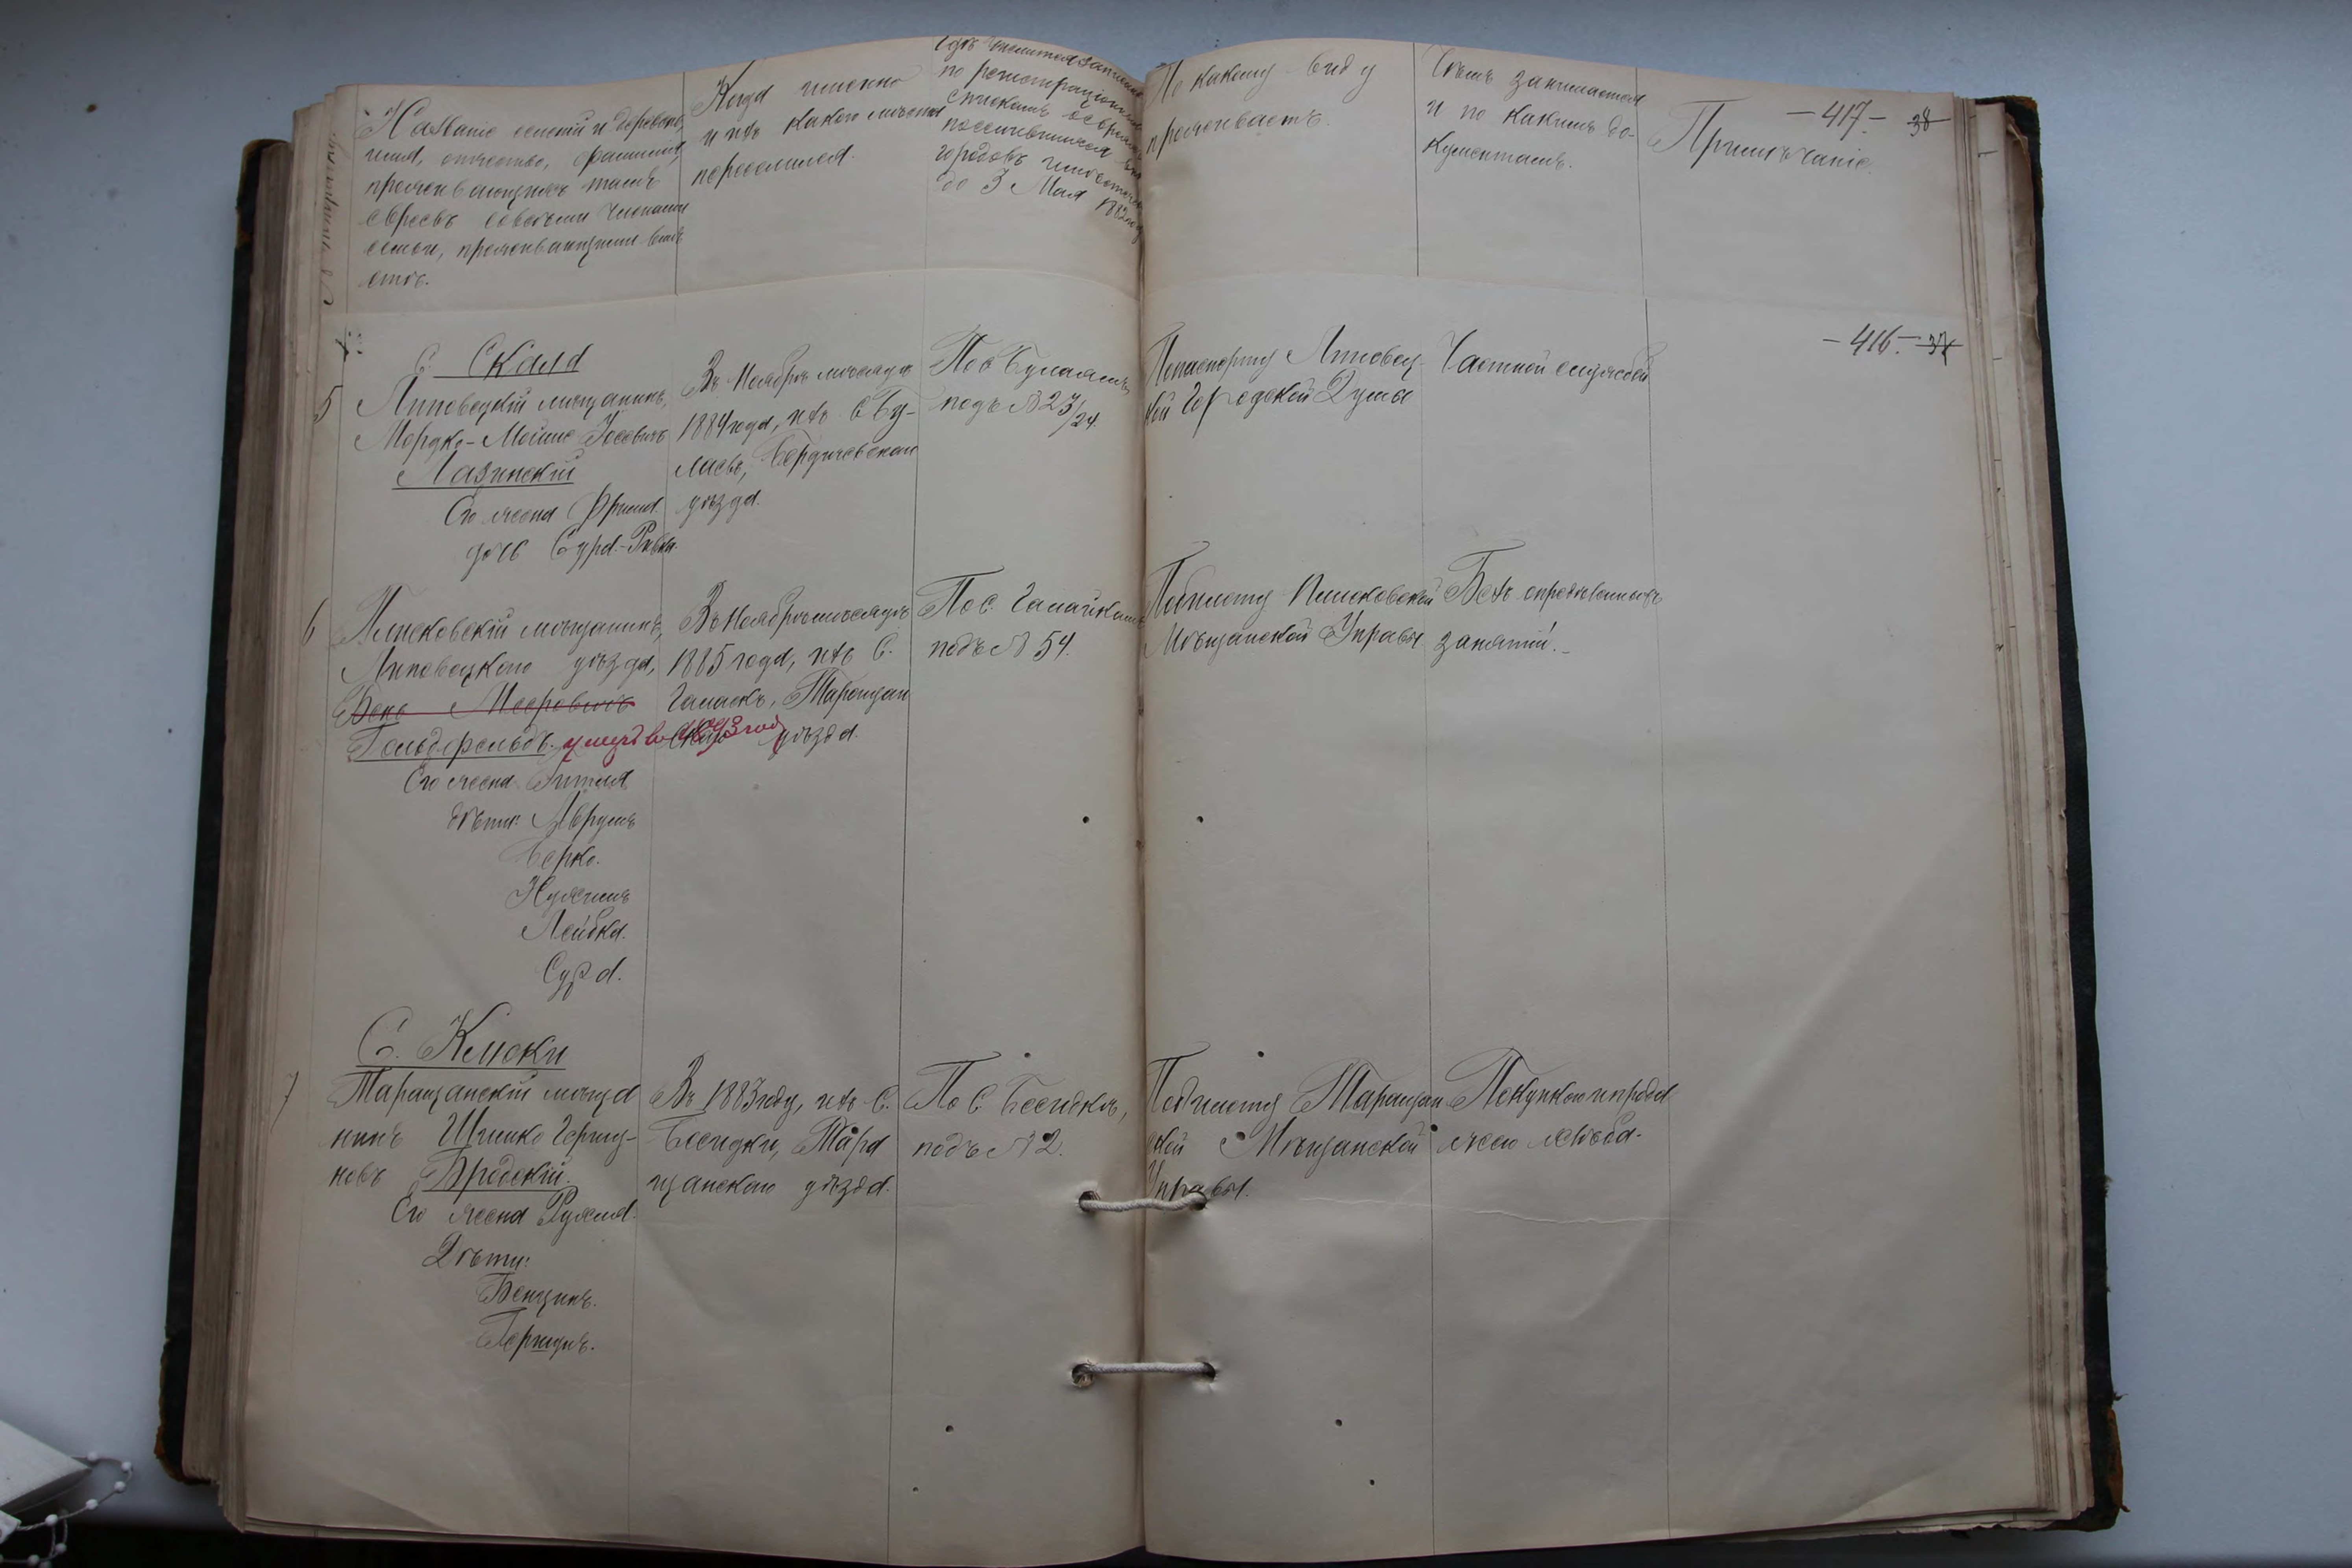 Названіе селеній и деревень,
имя, отчество, фамилія,
проживающихъ тамъ
евреевъ со всѣми членами
семьи, проживающими вмѣ
стѣ.
Когда именно
и изъ какого мѣста
переселился.
Гдѣ числится записан
по регистраціоннымъ
спискамъ
поселившихся внѣ
городовъ и мѣстечекъ
до 3 Мая 1882 года
По какому виду
проживаетъ.
Чѣмъ занимается
и по какимъ до-
кументамъ.
— 417. — 38
Примѣчаніе.
— 416. — 37
С. Скала
5
Липовецкій мѣщанинъ,
Мордко-Мойше Іосевичъ
Лазинскій
Его жена Фрима.
дочь Сура-Ривка.
Въ Ноябрѣ мѣсяцѣ
1884 года, изъ с. Бу-
лаевъ, Бердичевскаго
уѣзда.
По с. Булаямъ
подъ № 23/24.
По паспорту Липовец-
кой Городской Думы
Частной службой
6
Плисковскій мѣщанинъ,
Липовецкаго уѣзда,
Бено Мееровичъ
Гольдфельдъ. умеръ въ 1893 году
Его жена Гитля
дѣти: Аврумъ
Берко.
Нухимъ
Лейбка.
Сура.
Въ Ноябрѣ мѣсяцѣ
1885 года, изъ С.
Галаекъ, Таращан
скаго уѣзда.
По с. Галайкамъ
подъ № 54.
По билету Плисковской
Мѣщанской Управы
Безъ опредѣленныхъ
занятій.
7
С. Клюки
Таращанскій мѣща
нинъ Шимко Гершу-
новъ Бродскій.
Его жена Рухля.
Дѣти:
Бенціинъ.
Гершунъ.
Въ 1883 году, изъ С.
Бесидки, Тара
щанскаго уѣзда.
По С. Бесидкѣ,
подъ № 2.
По билету Таращан
ской Мѣщанской
Управы.
Покупкою и прода
жею хлѣба.